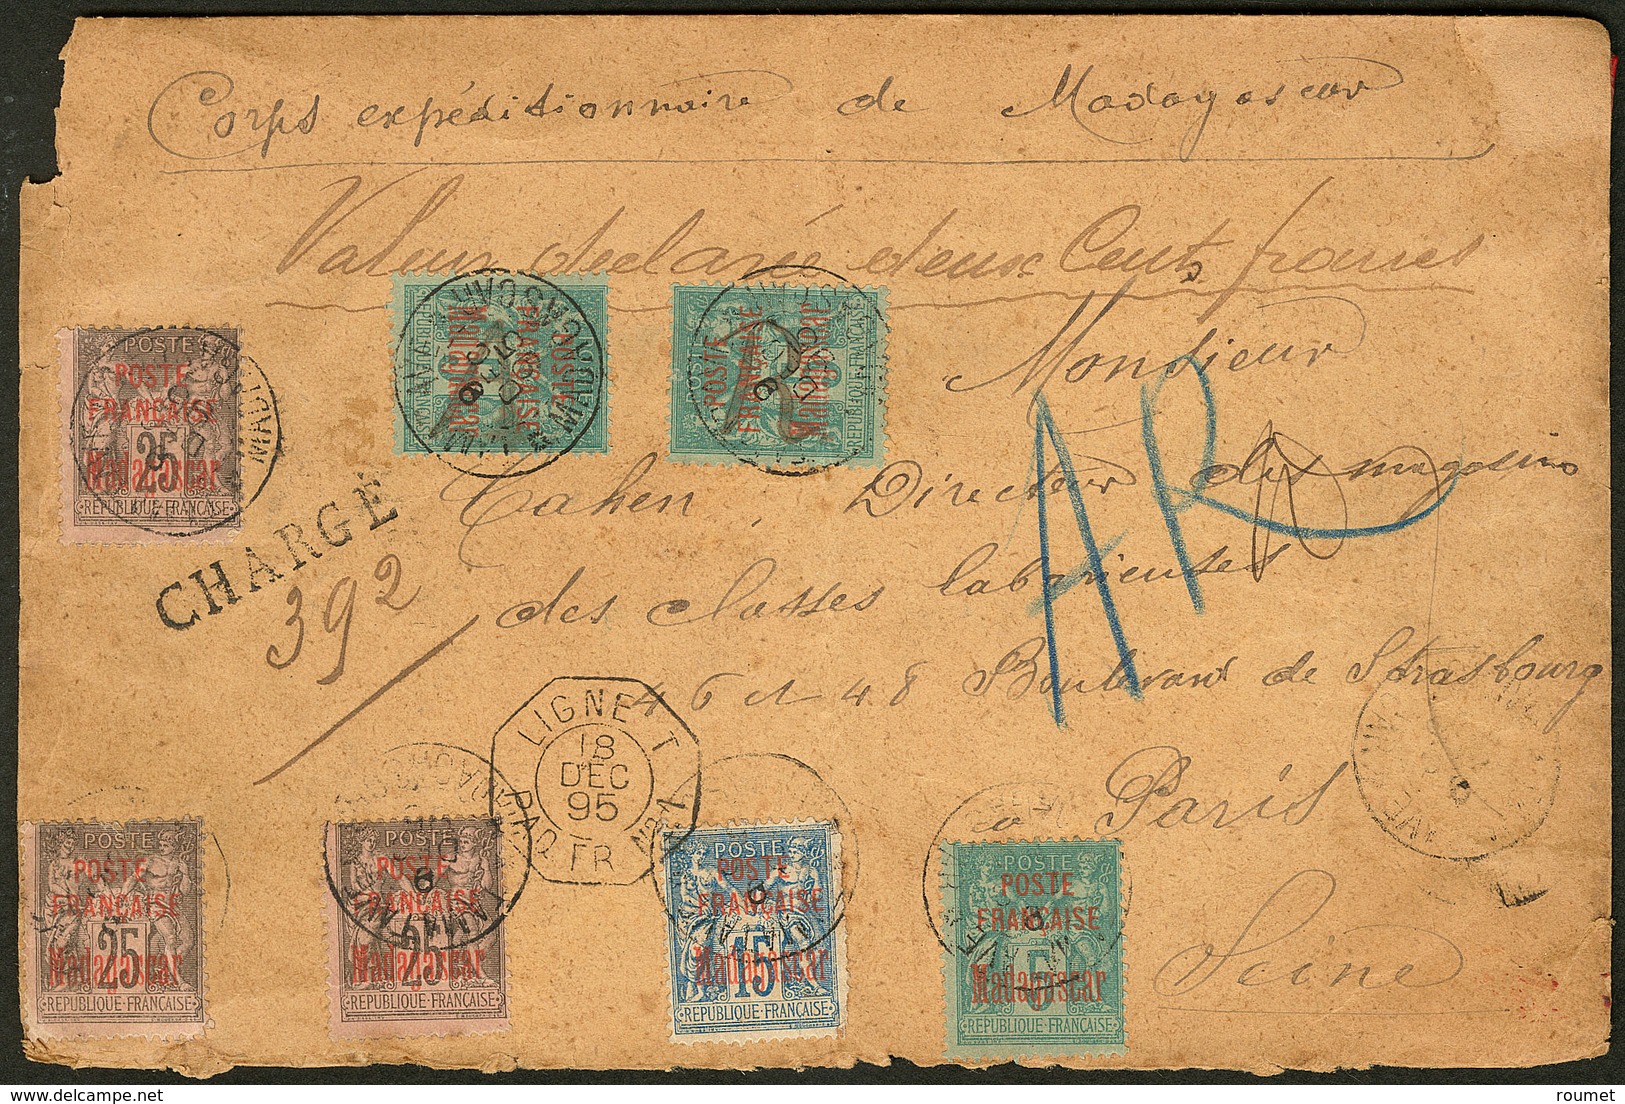 Corps expéditionnaire de Madagascar
Valeur déclarée deux Cents francs
Monsieur
Cahen, Directeur des magasins
des classes laborieuses
46 et 48 Boulevard de Strasbourg
Paris
Seine
AR
CHARGÉ
392
LIGNE T
18
DEC
95
PAQ. FR. Nº 1
POSTE
POSTE
FRANÇAISE
25
Madagascar
RÉPUBLIQUE FRANÇAISE
POSTE
FRANÇAISE
Madagascar
RÉPUBLIQUE FRANÇAISE
POSTE
FRANÇAISE
Madagascar
RÉPUBLIQUE FRANÇAISE
POSTE
POSTE
FRANÇAISE
25
Madagascar
RÉPUBLIQUE FRANÇAISE
POSTE
POSTE
FRANÇAISE
25
Madagascar
RÉPUBLIQUE FRANÇAISE
POSTE
POSTE
FRANÇAISE
15
Madagascar
RÉPUBLIQUE FRANÇAISE
POSTE
POSTE
FRANÇAISE
5
Madagascar
RÉPUBLIQUE FRANÇAISE
© roumet